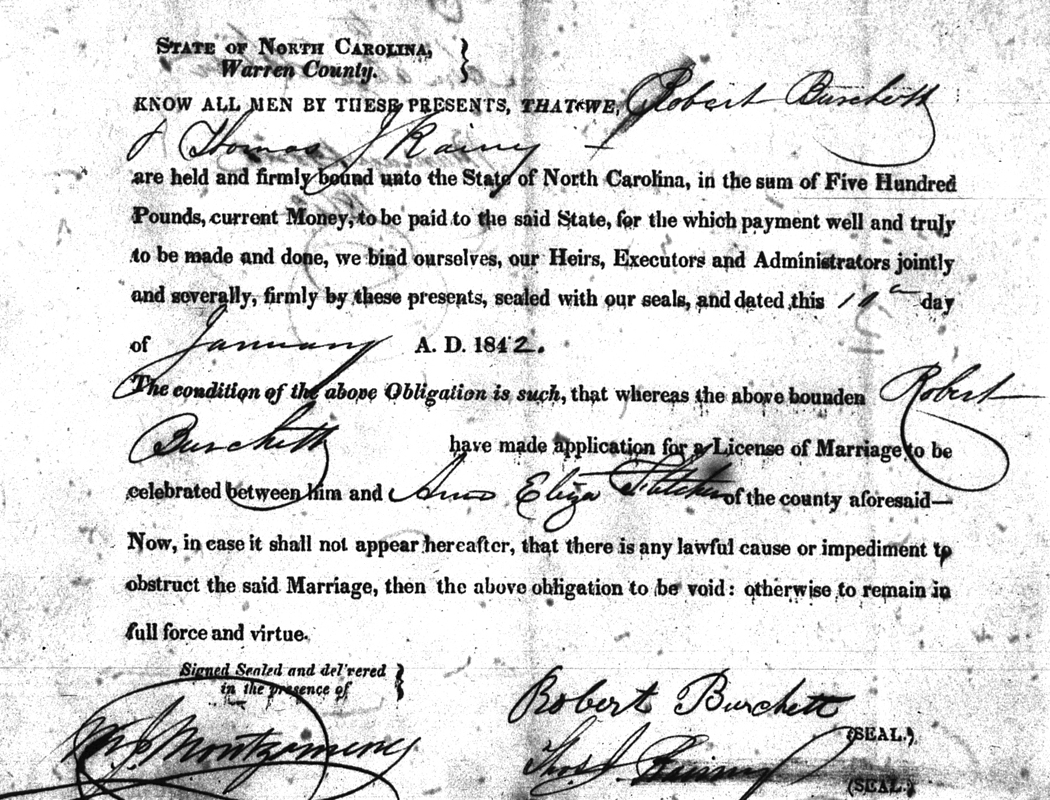 STATE OF NORTH CAROLINA, }
Warren County.
KNOW ALL MEN BY THESE PRESENTS, THAT WE, Robert Burchett
& Thomas J Rainey
are held and firmly bound unto the State of North Carolina, in the sum of Five Hundred
Pounds, current Money, to be paid to the said State, for the which payment well and truly
to be made and done, we bind ourselves, our Heirs, Executors and Administrators jointly
and severally, firmly by these presents, sealed with our seals, and dated this day
of January A. D. 1842.
The condition of the above Obligation is such, that whereas the above bounden Robert
Burchett have made application for a License of Marriage to be
celebrated between him and Eliza of the county aforesaid—
Now, in case it shall not appear hereafter, that there is any lawful cause or impediment to
obstruct the said Marriage, then the above obligation to be void: otherwise to remain in
full force and virtue.
Signed Sealed and del'vered }
in the presence of
Robert Burchett
(SEAL.)
Montgomery Thos J. Rainey
(SEAL.)